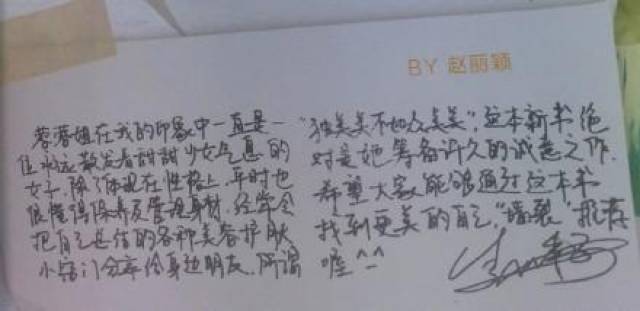 BY 赵丽颖
蓉蓉姐在我的印象中一直是一
位永远散发着甜甜少女气息的
女子,除了体现在性格上,平时也
很懂得保养及管理身材,经常会
把自己甚信的各种美容护肤
小窍门分享给身边朋友,所谓
“独美美不如众美美”,这本新书绝
对是她筹备许久的诚意之作.
希望大家能够通过这本书
找到更美的自己,“墙裂”推荐
喔^_^